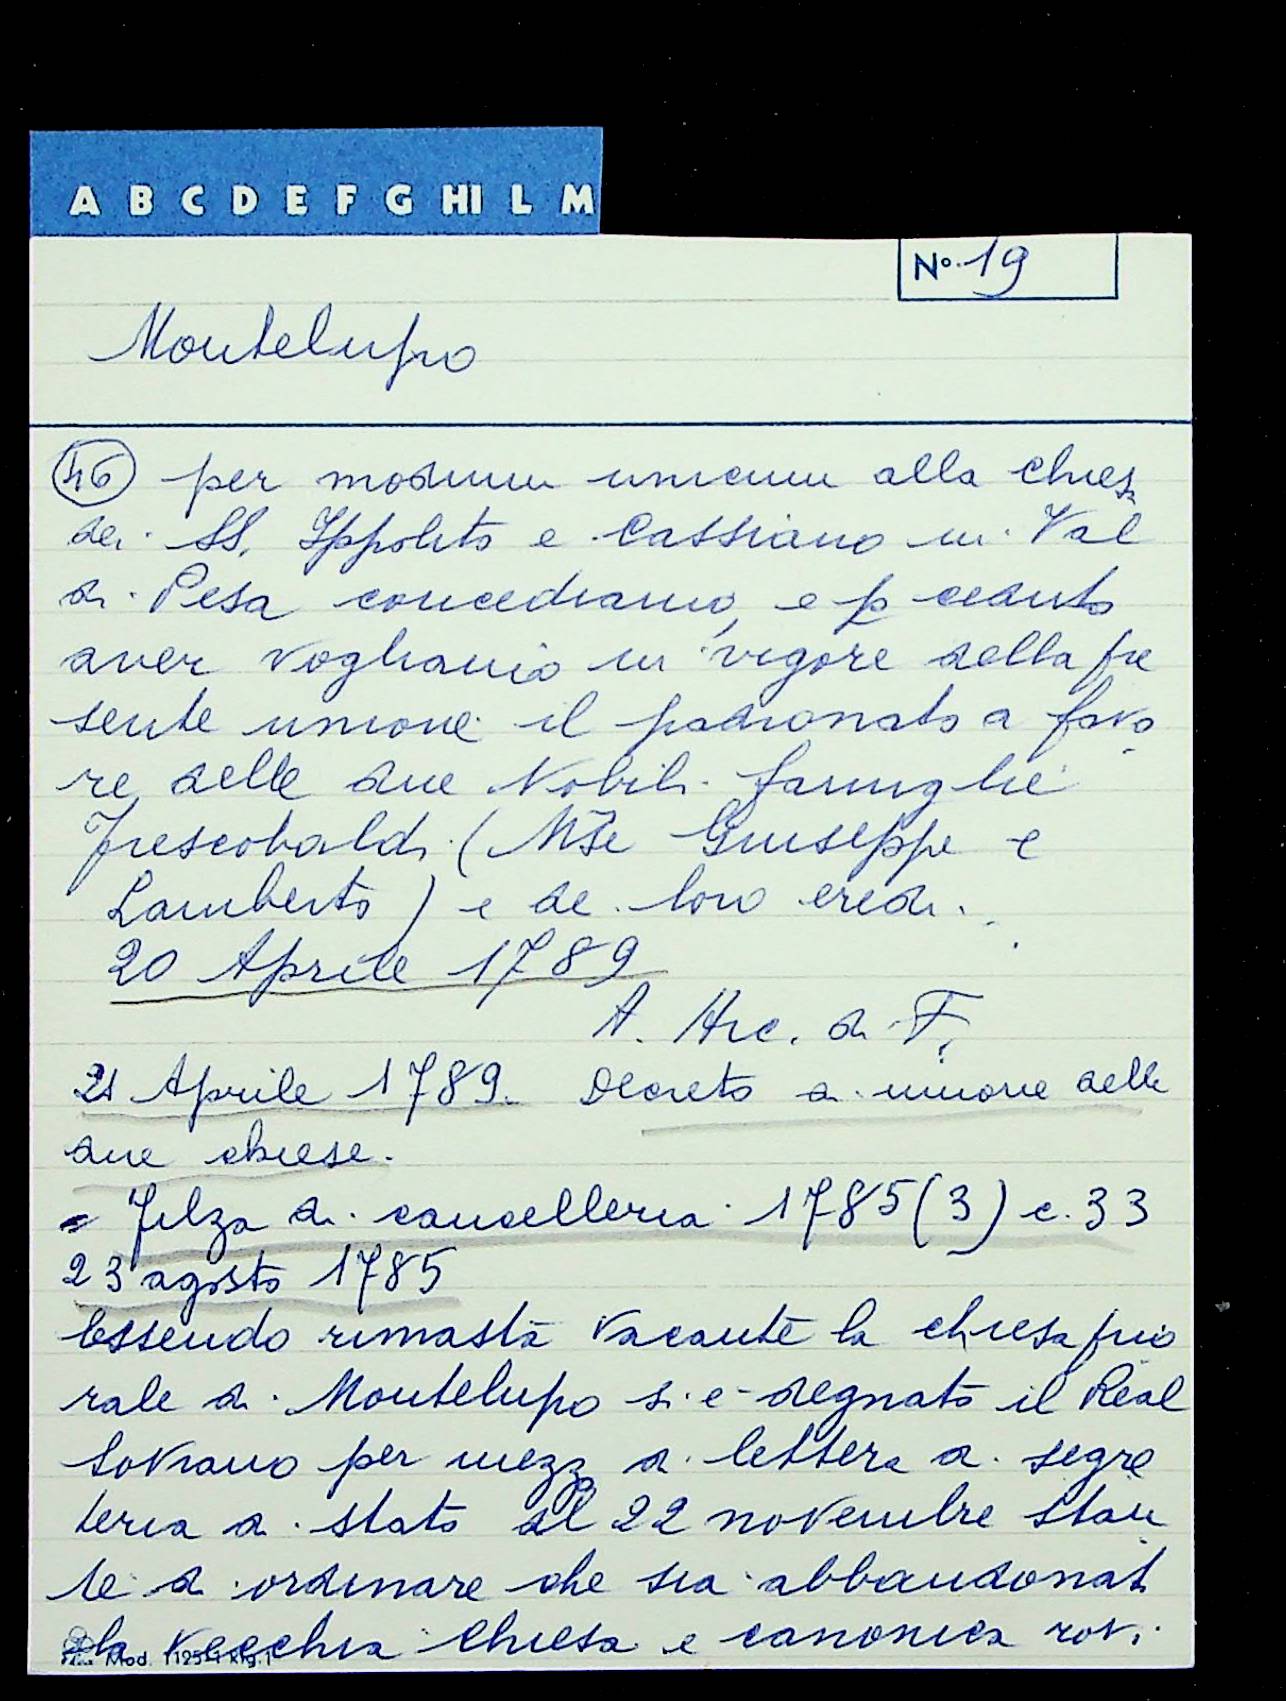 A B C D E F G HI L M
N° 19
Montelupo
46 per modum unicum alla chiesa
dei SS. Ippolito e Cassiano in Val
di Pesa concediamo, e p ceduto
aver vogliamo in vigore della pre
sente unione il padronato a favo
re delle due Nobili famiglie
Frescobaldi (Mse Giuseppe e
Lamberto) e de loro eredi.
20 Aprile 1789
A. Arc. di F.
21 Aprile 1789. Decreto di unione delle
due chiese.
Filza di cancelleria 1785 (3) c. 33
23 agosto 1785
Essendo rimasta vacante la chiesa prio
rale di Montelupo si è degnato il Real
Sovrano per mezzo di lettera di segre
teria di stato al 22 novembre stan
te di ordinare che sia abbandonat
la vecchia chiesa e canonica rovi
Mod. 1125-1 rig. 1